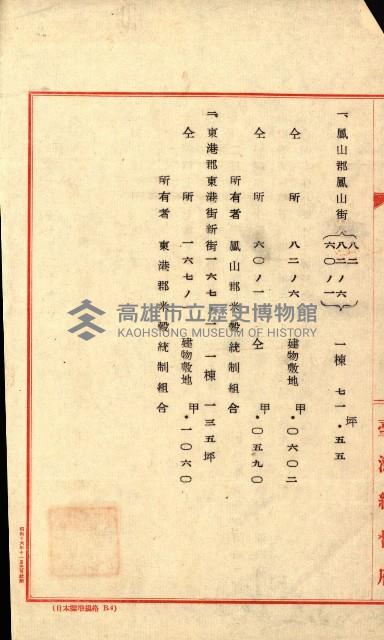 一、鳳山郡鳳山街 八二 八二ノ六 六〇ノ一 一棟 七一・五五坪
仝所 八二ノ六 建物敷地 甲・〇六〇二
仝所 六〇ノ一 仝 甲・〇五九〇
所有者 鳳山郡米穀統制組合
二、東港郡東港街新街一六七ノ二 一棟 一三五坪
仝所 一六七ノ 建物敷地 甲・一〇六〇
所有者 東港郡米穀統制組合
臺灣總督府
高雄市立歷史博物館
KAOHSIUNG MUSEUM OF HISTORY
(日本標準規格 B4)